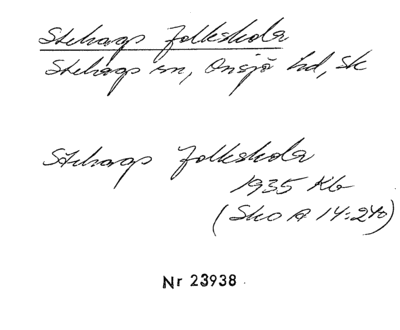 Stehags folkskola
Stehags sn, Onsjö hd, Sk
Stehags folkskola
1935 Kb
(Sko A 14:240)
Nr 23938